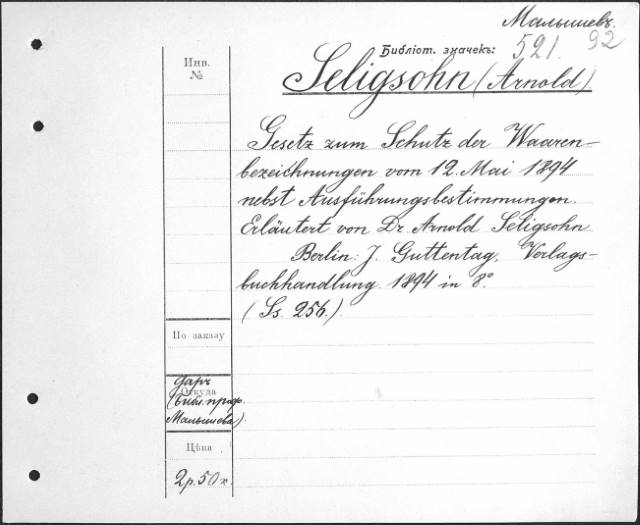 Малышевъ.
Библіот. значекъ: 521. 92
Инв.
№
Seligsohn (Arnold).
Gesetz zum Schutz der Waaren-
bezeichnungen vom 12. Mai 1894
nebst Ausführungsbestimmungen.
Erläutert von Dr. Arnold Seligsohn
Berlin: J. Guttentag, Verlags-
buchhandlung. 1894 in 8°.
(Ss. 256.)
По заказу
Откуда
даръ
(библ. проф.
Малышева).
Цѣна
2 р. 50 к.